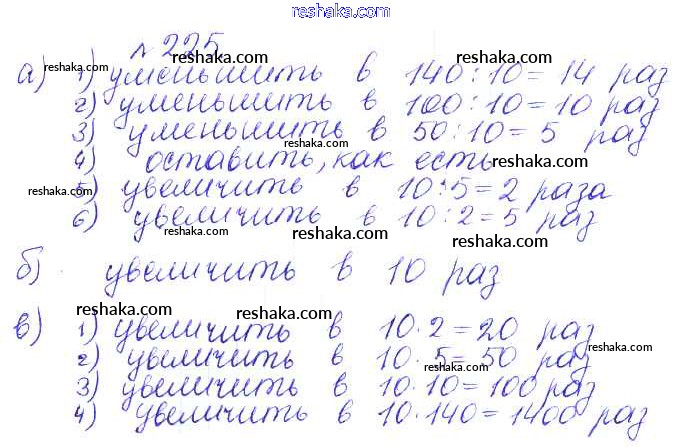 reshaka.com
№ 225
а) 1) уменьшить в 140 : 10 = 14 раз
2) уменьшить в 100 : 10 = 10 раз
3) уменьшить в 50 : 10 = 5 раз
4) оставить, как есть
5) увеличить в 10 : 5 = 2 раза
6) увеличить в 10 : 2 = 5 раз
б) увеличить в 10 раз
в) 1) увеличить в 10 · 2 = 20 раз
2) увеличить в 10 · 5 = 50 раз
3) увеличить в 10 · 10 = 100 раз
4) увеличить в 10 · 140 = 1400 раз
reshaka.com
reshaka.com
reshaka.com
reshaka.com
reshaka.com
reshaka.com
reshaka.com
reshaka.com
reshaka.com
reshaka.com
reshaka.com
reshaka.com
reshaka.com
reshaka.com